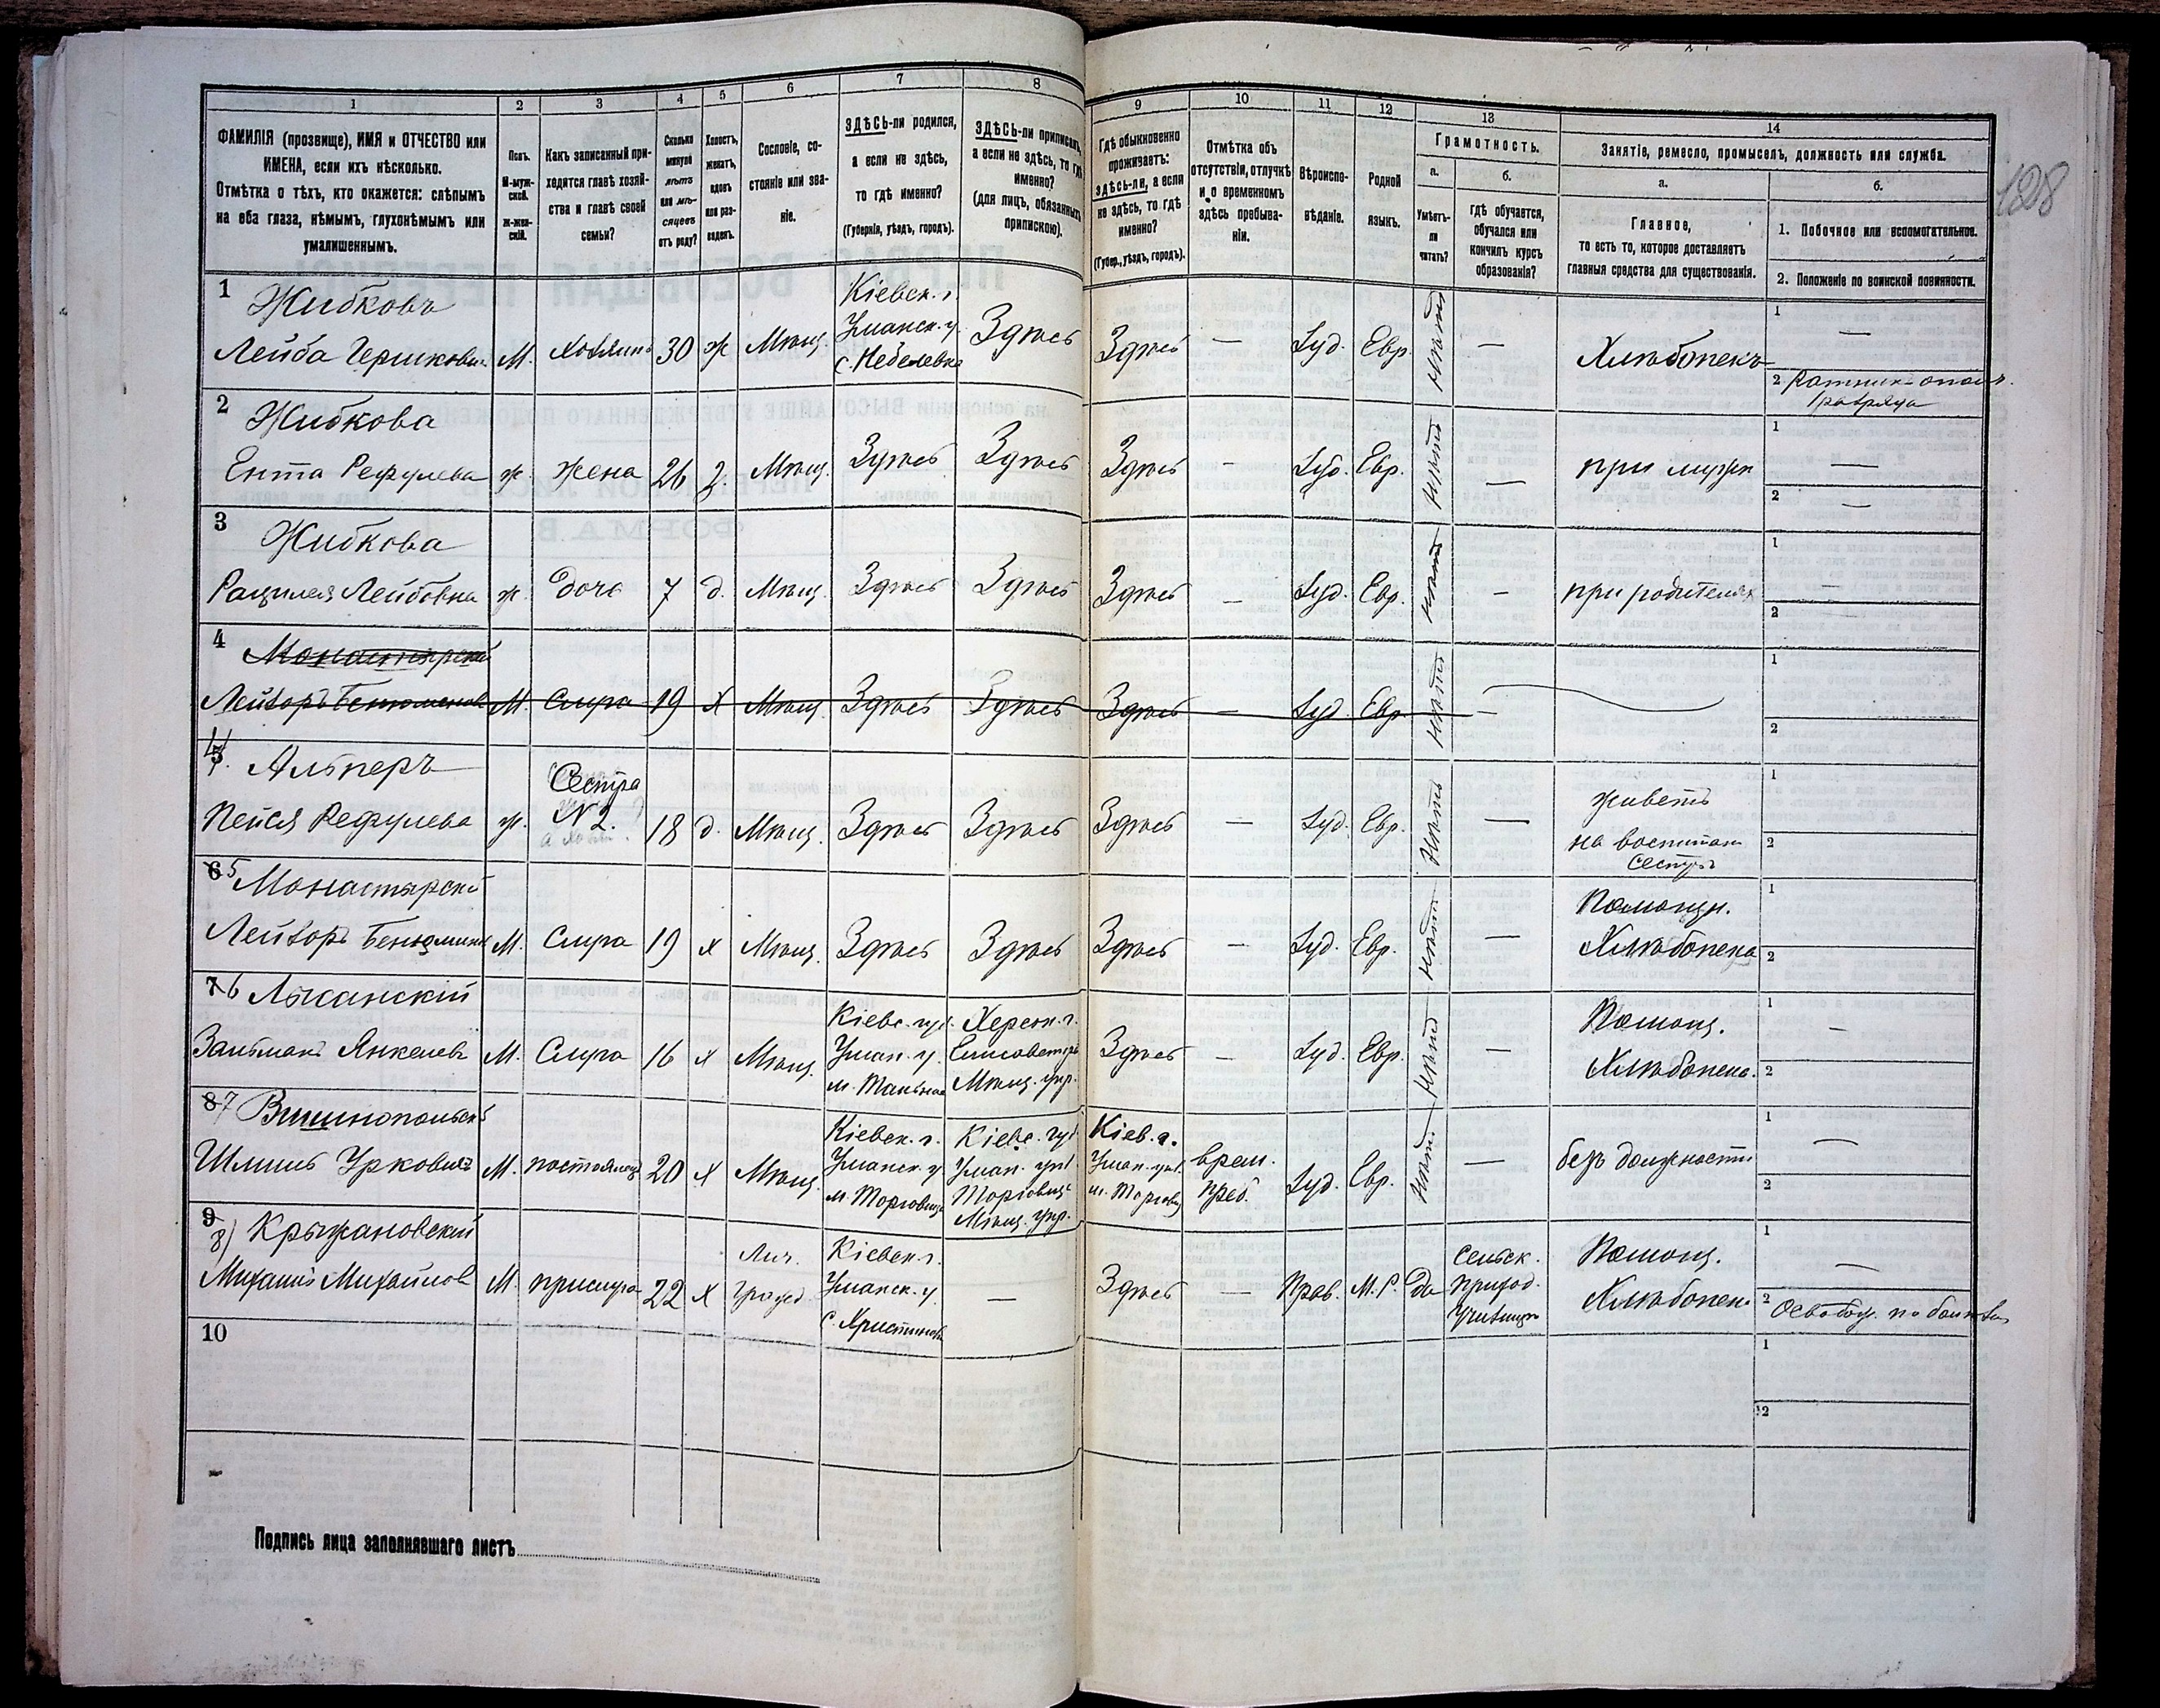 1
ФАМИЛІЯ (прозвище), ИМЯ и ОТЧЕСТВО или
ИМЕНА, если ихъ нѣсколько.
Отмѣтка о тѣхъ, кто окажется: слѣпымъ
на оба глаза, нѣмымъ, глухонѣмымъ или
умалишеннымъ.
2
Полъ.
М-муж-
ской.
ж-жен-
скій.
3
Какъ записанный при-
ходится главѣ хозяй-
ства и главѣ своей
семьи?
4
Сколько
минуло
лѣтъ
или мѣ-
сяцевъ
отъ роду?
5
Холостъ,
женатъ,
вдовъ
или раз-
веденъ.
6
Сословіе, со-
стояніе или зва-
ніе.
7
ЗДѢСЬ-ли родился,
а если не здѣсь,
то гдѣ именно?
(Губернія, уѣздъ, городъ).
8
ЗДѢСЬ-ли приписанъ,
а если не здѣсь, то гдѣ
именно?
(для лицъ, обязанныхъ
припискою).
9
Гдѣ обыкновенно
проживаетъ:
здѣсь-ли, а если
не здѣсь, то гдѣ
именно?
(Губер., уѣздъ, городъ).
10
Отмѣтка объ
отсутствіи, отлучкѣ
и о временномъ
здѣсь пребыва-
ніи.
11
Вѣроиспо-
вѣданіе.
12
Родной
языкъ.
13
Грамотность.
а.
Умѣетъ-
ли
читать?
б.
гдѣ обучается,
обучался или
кончилъ курсъ
образованія?
14
Занятіе, ремесло, промыселъ, должность или служба.
а.
Главное,
то есть то, которое доставляетъ
главныя средства для существованія.
б.
1. Побочное или вспомогательное.
2. Положеніе по воинской повинности.
128
1 Жибковъ
Лейба Гершкови.
М.
Хозяинъ
30
ж
Мѣщ.
Кіевск. г.
Уманск. у.
с. Небелевка
Здѣсь
Здѣсь
—
Іуд.
Евр.
нѣтъ
—
Хлѣбопекъ
1 —
2 Ратник ополч.
1 разряда
2 Жибкова
Ента Рефулева
ж.
жена
26
З.
Мѣщ.
Здѣсь
Здѣсь
Здѣсь
—
Іуд.
Евр.
нѣтъ
—
при мужѣ
1 —
2 —
3 Жибкова
Рацилея Лейбовна
ж.
дочь
7
д.
Мѣщ.
Здѣсь
Здѣсь
Здѣсь
—
Іуд.
Евр.
нѣтъ
—
при родителях
1 —
2
4 Монастырскій
Лейзоръ
М.
Слуга
19
Х
Мѣщ.
Здѣсь
Здѣсь
Здѣсь
—
Іуд.
Евр.
нѣтъ
—
1
2
5 4. Альперъ
Пейся Рефулева
ж.
Сестра
N 2.
18
д.
Мѣщ.
Здѣсь
Здѣсь
Здѣсь
—
Іуд.
Евр.
нѣтъ
—
живетъ
на воспитан
сестры
1
2
6 5 Монастырскі
Лейзоръ Беньямин
М.
Слуга
19
х
Мѣщ.
Здѣсь
Здѣсь
Здѣсь
—
Іуд.
Евр.
нѣтъ
—
Помощн.
Хлѣбопека
1
2
7 6
Зальманъ Янкелев
М.
Слуга
16
х
Мѣщ.
Кіевс. губ.
Уман. у.
м. Тальное
Херсон. г.
Елисаветгр
Мѣщ. упр.
Здѣсь
—
Іуд.
Евр.
нѣтъ
—
Помощ.
Хлѣбопека.
1 —
2
8 7 Вишнопольскі
Шлинь Урковичъ
М.
постоялец
20
х
Мѣщ.
Кіевск. г.
Уманск. у
м. Торговица
Кіевс. губ
Уман. уѣз.
Торговица
Мѣщ. упр.
Кіев. г.
Уман. уѣз.
м. Торговиц
врем.
преб.
Іуд.
Евр.
нѣтъ.
—
безъ должности
1 —
2
9 8) Крыжановскій
Михаилъ Михайлов
М.
прислуга
22
х
Лич.
гражд.
Кіевск. г.
Уманск. у.
с. Христинов
—
Здѣсь
—
Прав.
М. Р.
да
Сельск.
приход.
училищѣ
Помощ.
Хлѣбопек.
1 —
2 Освобож. по болѣзни
10
1
2
Подпись лица заполнявшаго листъ